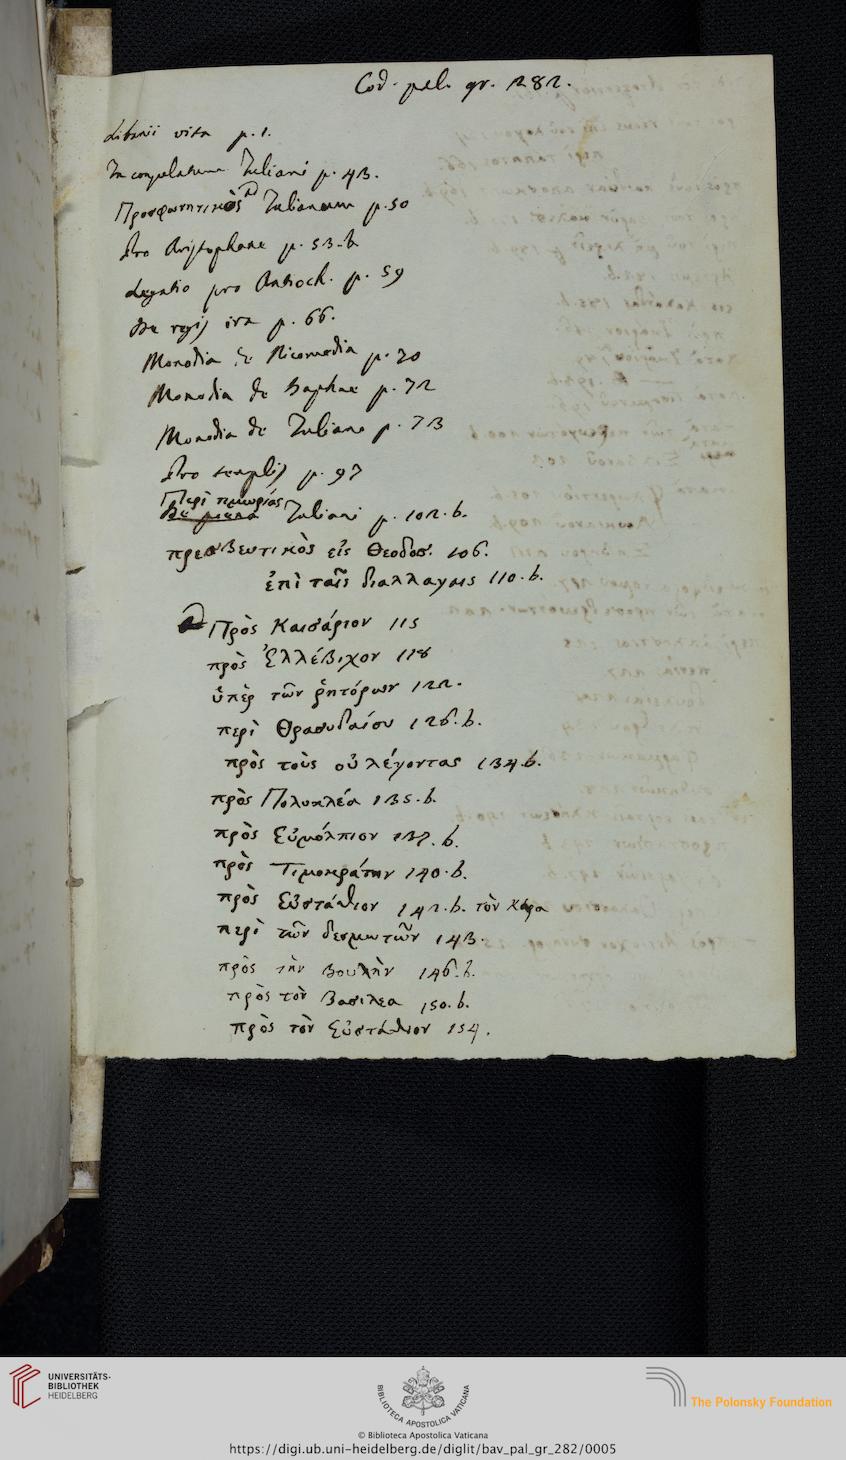 Cod. pal. gr. 282.
Libanii vita p. 1.
In consulatum Iuliani p. 43.
Προσφωνητικὸς ad Iulianum p. 50
Pro Aristophane p. 53. b
Legatio pro Antioch. p. 59
De regis ira p. 66.
Monodia de Nicomedia p. 70
Monodia de Daphne p. 72
Monodia de Iuliano p. 73
Pro templis p. 97
Περὶ τιμωρίας
Iuliani p. 102. b.
πρεσβευτικὸς εἰς Θεοδοσ. 106.
ἐπὶ ταῖς διαλλαγαις 110. b.
Πρὸς Καισάριον 115
πρὸς Ἐλλέβιχον 118
ὑπὲρ τῶν ῥητόρων 122.
περὶ Θρασυδαίου 126. b.
πρὸς τοὺς οὐ λέγοντας 134. b.
πρὸς Πολυκλέα 135. b.
πρὸς Εὐμόλπιον 137. b.
πρὸς Τιμοκράτην 140. b.
πρὸς Εὐστάθιον 142. b. τὸν Κάρα
περὶ τῶν δεσμωτῶν 143.
πρὸς τὴν βουλὴν 146. b.
πρὸς τὸν βασιλεα 150. b.
πρὸς τὸν Εὐστάθιον 154.
UNIVERSITÄTS-
BIBLIOTHEK
HEIDELBERG
BIBLIOTECA APOSTOLICA VATICANA
The Polonsky Foundation
© Biblioteca Apostolica Vaticana
https://digi.ub.uni-heidelberg.de/diglit/bav_pal_gr_282/0005